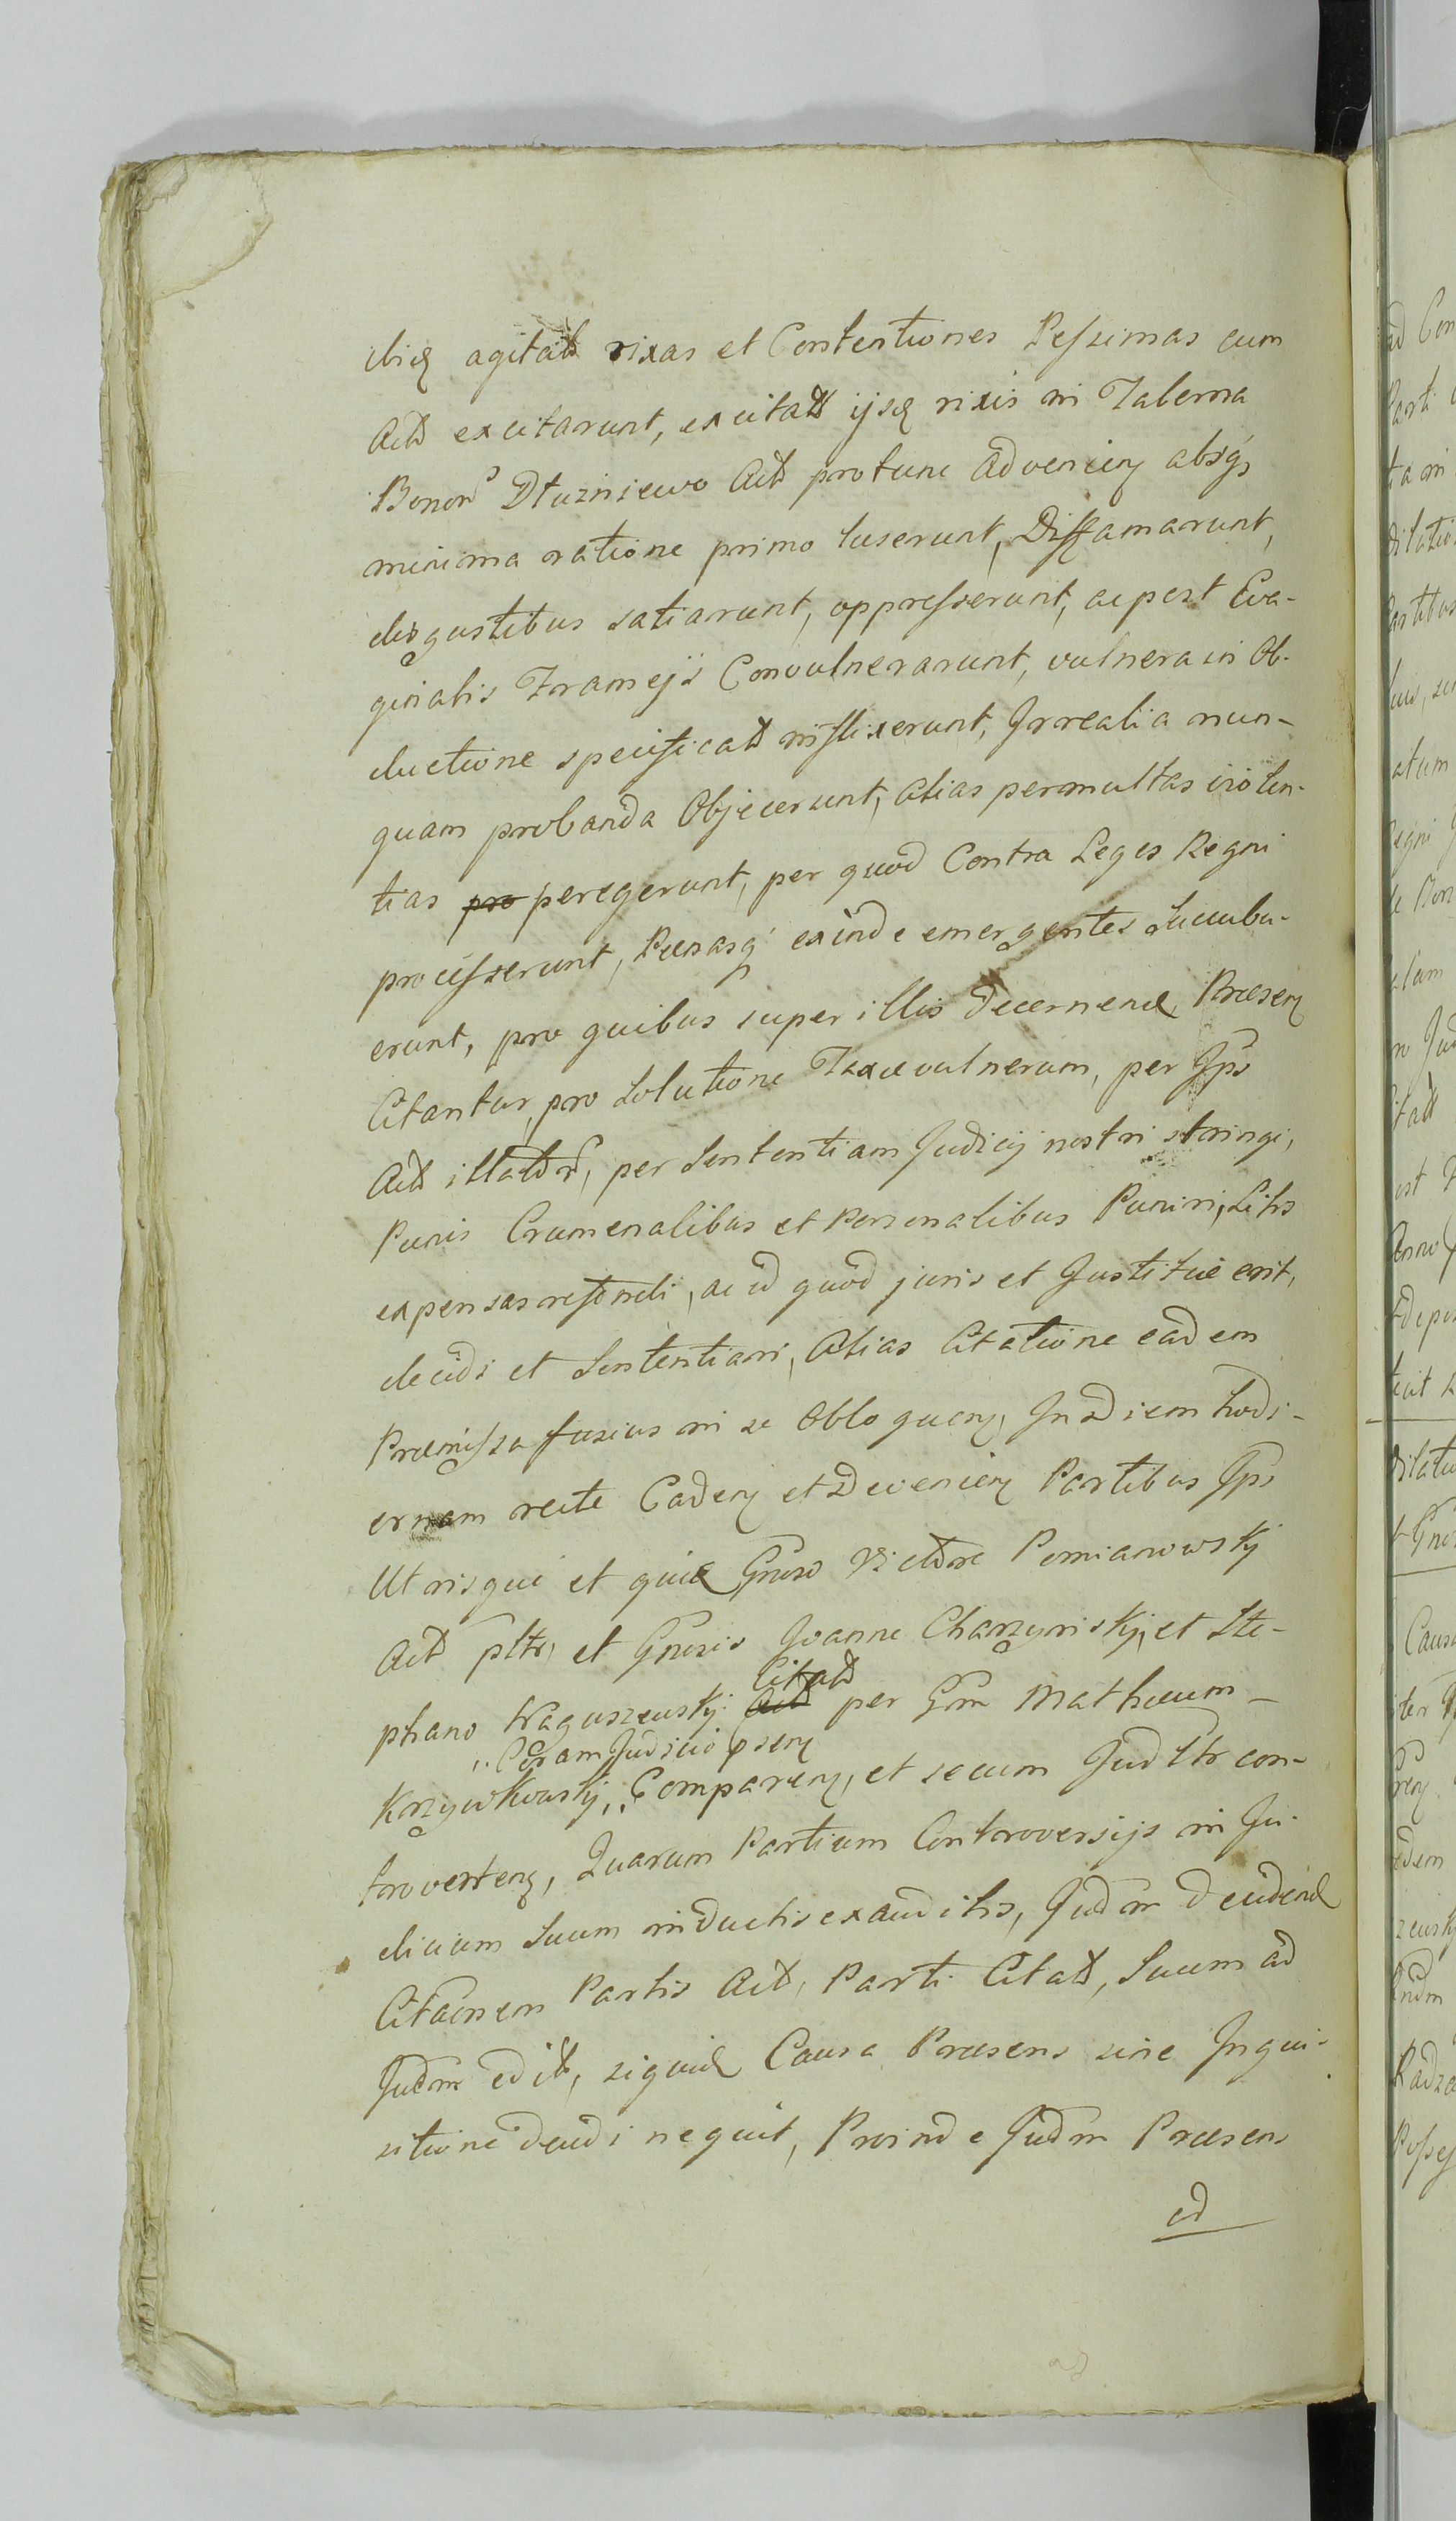 ibiq agitatt rixas et Contentiones Pessimas cum
Actt excitarunt, excitatt ijsq rixis in Taberna
Bonor Dłuzniewo Actt protunc Advenien absq
minima ratione primo luserunt, Diffamarunt,
disgustibus satiarunt, oppresserunt, ac post Eva-
ginatis Frameijs Convulnerarunt, vulnera in Ob-
ductione specificatt inflixerunt, Irrealia nun-
quam probanda Objecerunt, Alias permultas violen-
tias pro peregerunt, per quod Contra Leges Regni
processerunt, Pænasq exinde emergentes Succubu-
erunt, pro quibus super illis Decernend Præsen
Citantur, pro Solutione Taxæ vulnerum, per Ips
Actt illator, per Sententiam Judicij nostri stringi,
Pænis Crumenalibus et Personalibus Puniri, Litis
expensas refundi, ac id quod juris et Justitiæ erit,
decidi et Sententiari, Alias Citatione eadem
Præmissa fusius in se Obloquen, In diem hodi-
ernam recte Caden et Devenien Partibus Ips
Utrisque et quid Gnroso Victore Pomianowskj
Act pltr, et Gnrosis Joanne Charzynskj, et Ste-
Citatt
phano Waguszewskj Actt per Gnm Mathæum
,, Coram Judicio psen
Krzywkowskj,, Comparen, et secum Jud ltr con-
troverten, Quarum Partium Controversijs in Ju-
dicium Suum inductis exauditis, Judm Deciden
Citaonem Partis Act, Parti Citatt, Suum ad
Judm edit, siquid Causa Præsens sine Inqui-
sitione decidi nequit, Proinde Judm Præsens
ad

ad Con
Parti
ta in
Dilatio
Partibus
atum
Regni
Anno
Dilatio
Causa